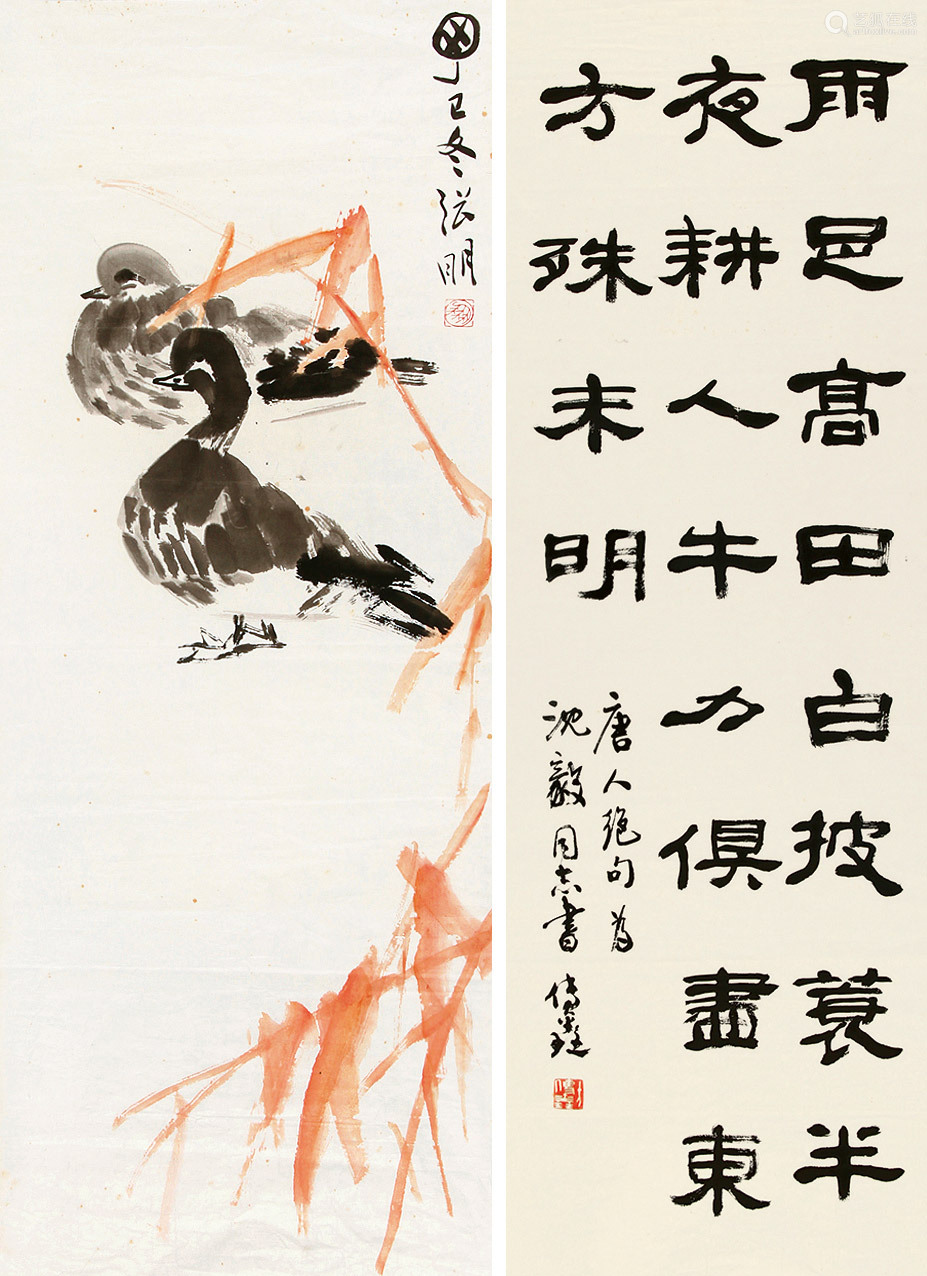 艺狐在线
雨足高田白披蓑半
夜耕人牛力俱盡東
方殊未明
唐人絕句為
沈毅同志書
丁巳冬张明